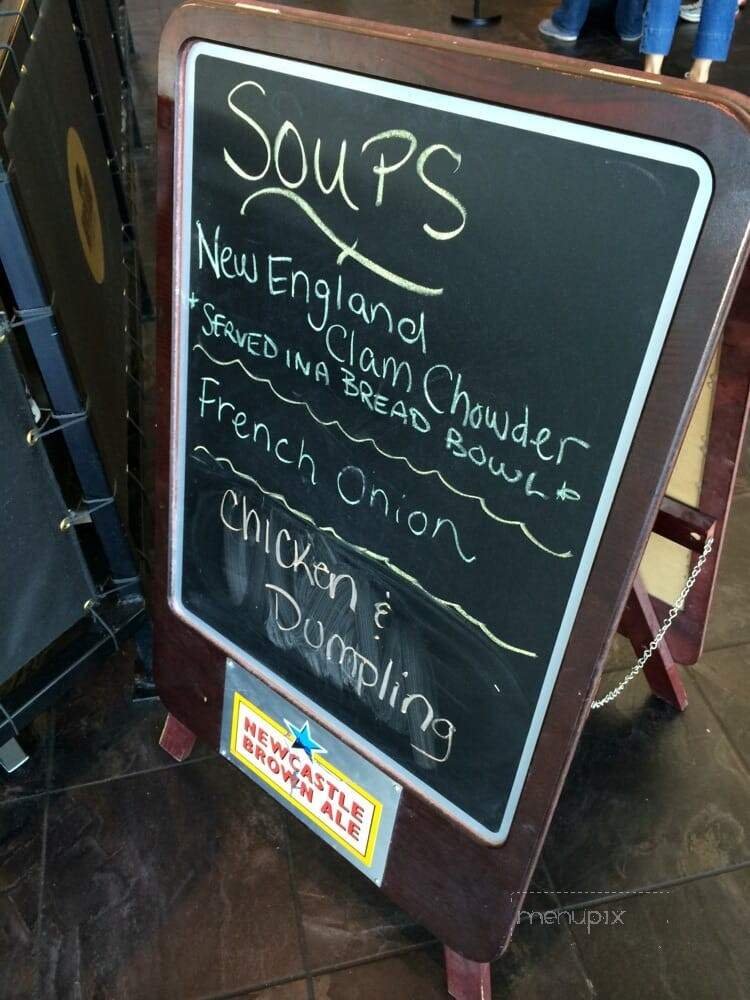 SOUPS
New England
Clam Chowder
*SERVED IN A BREAD BOWL*
French Onion
Chicken &
Dumpling
NEWCASTLE
BROWN ALE
menupix